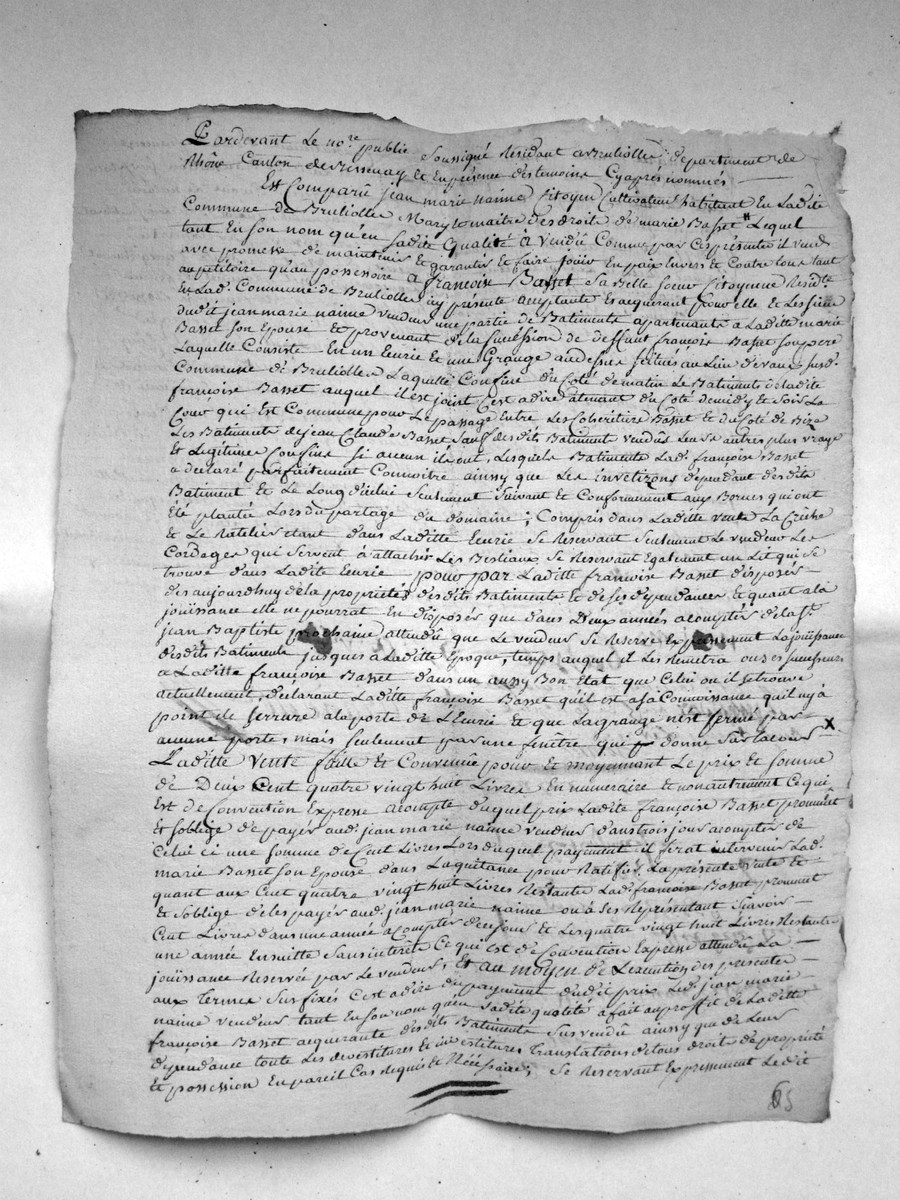 Pardevant Le no.re public Soussigné Résidant a Brulliolle département de
Rhône Canton de Bessenay Et En présence des témoins Cy après nommés —
Est Comparû jean marie nainne Citoyen Cultivateur habitant En Ladite
Commune de Brulliolle Mary et maitre des droits de marie Basset # Lequel
tant En Son nom qu'en Sadite qualité à Vendû Comme par Ces présentes il vend
avec promesse de maintenir Et garantir Et faire jouir En paix Envers Et Contre tous tant
au pétitoire qu'au possessoire a françoise Basset Sa Belle Soeur Citoyenne Résid.te
En Lad. Commune de Brulliolle icy présente acceptante Et acquerant pour elle Et Les Siens
dudit jean marie nainne vendeur une partie de Batiments apartenants a Ladite marie
Basset Son Epouse Et provenant de la Succéssion de deffunt françois Basset Son père
Laquelle Consiste En un Ecurie Et une Grange au dessus Scitués au Lieu de Susd.
Commune de Brulliolle Laquelle Confine du Coté de matin Le Batiments de Ladite
françoise Basset auquel il Est joint C'est a dire attenant du Coté de midy Et Soir La
Cour qui Est Commune pour Le passage Entre Les Cohéritiers Basset Et du Coté de Bize
Les Batiments de jean Claude Basset Sauf desdits Batiments vendûs Leurs autres plus vrays
Et Legitimes Confins Si aucun ils ont, Lesquels Batiments Lad. françoise Basset
a déclaré parfaitement Connoitre ainsy que Les dépendant desdits
Batiment Et Le Long d'iclui Seulement Suivant Et Conformement aux Bornes qui ont
été planté Lors du partage du domaine; Compris dans Laditte vente La Crèche
Et Le Ratelier étant dans Laditte Ecurie Se Réservant Seulement Le vendeur Les
Cordages qui Servent à attacher Les Bestiaux Se Réservant Egalement un Lit qui Se
trouve dans Ladite Ecurie pour par Laditte françoise Basset disposér
des aujourdhuy de la propriétés desdits Batiments Et de Ses dependances Et quant a la
jouissance elle ne pourrat En disposér que dans Deux années a compter de la St
jean Baptiste prochaine attendû que Le vendeur Se Reserve Expressement La jouissance
desdits Batiments jusques à Laditte Epoque, temps auquel il Les Remetra ou Ses Successeurs
a Laditte françoise Basset dans un aussy Bon Etat que Celui ou il Se trouve
actuellement, déclarant Laditte françoise Basset qu'il est a Sa Connoissance qu'il n'y à
point de Serrure a la porte de L'Ecurie Et que La grange n'est fermé par
aucune porte, mais Seulement par une fenêtre qui donne Sur La Cour X
Laditte vente faitte Et Convenue pour Et moyennant Le prix Et Somme
de Deux Cent quatre vingt huit Livres En numeraire Et non autrement Ce qui
Est de Convention Expresse acompte duquel prix Ladite françoise Basset promet
Et Soblige de payer aud. jean marie nainne vendeur dans trois jours acompter de
Celui ci une Somme de Cent Livres Lors duquel payement il ferat intervenir Lad.
marie Basset Son Epouse dans La quittance pour Ratifier La présente vente Et
quant aux Cent quatre vingt huit Livres Restante Lad. françoise Basset promet
Et Soblige de les payer aud. jean marie nainne ou à Ses Représentant Scavoir —
Cent Livres dans une année a Compter de ce jour Et Les quatre vingt huit Livres Restantes
une année Ensuitte Sans interets Ce qui Est de Convention Expresse attendu La —
jouissance Reservée par Le vendeur; Et au moyen de L'execution des présentes —
aux Termes Sus fixés C'est a dire du payement dudit prix Led. jean marie
nainne vendeur tant En Son nom qu'en Sadite qualité à fait au proffit de Laditte
françoise Basset acquerante desdits Batiments Sus vendû ainsy que de Leurs
dependance toute Les devestitures Et investitures Translations de tous droit de propriété
Et possession En pareil Cas Requis Et Nécéssaire; Se Reservant Expressement Ledit
65